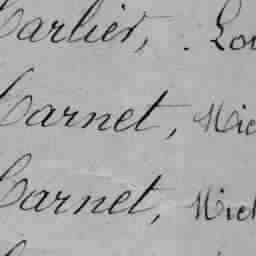 Carlier, Lou
Carnet, Mic
Carnet, Mich